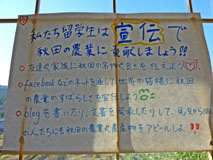 私たち留学生は宣伝で
秋田の農業に貢献しましょう!!
友達や家族に秋田の名物や良さを伝えよう
facebookなどのネットを通して世界の皆様に秋田
の農業のすばらしさを宣伝しよう
blogを書いたり、文書を発表したりして、
の人たちにも秋田の農業や農産物をアピールしよ